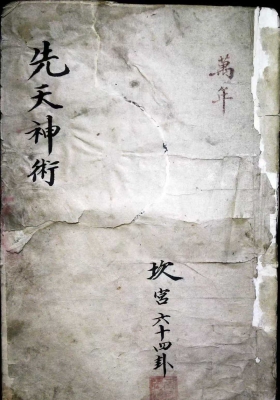 萬年
先天神術
坎宮六十四卦